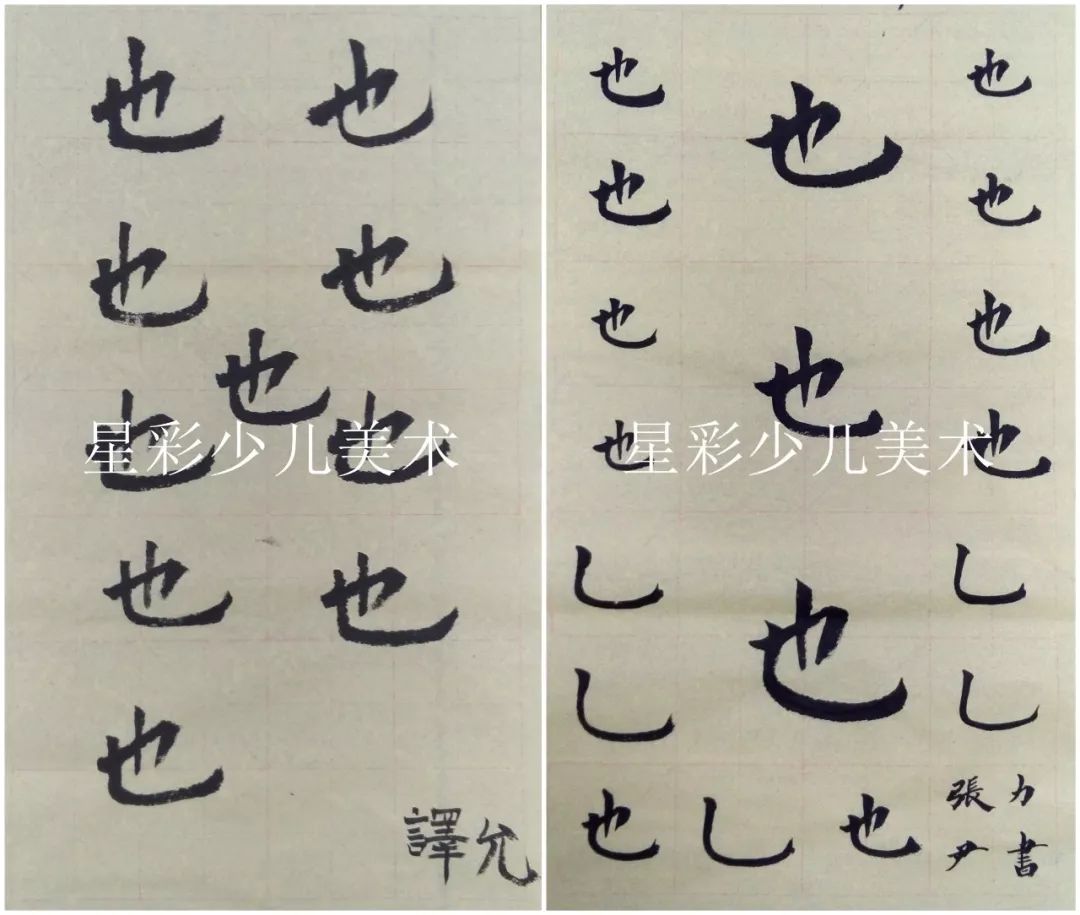 也 也
也 也
也
也 也
星彩少儿美术
也 也
也
譯允
也 也
也
也 也
也 也
也
也 也
星彩少儿美术
乚 乚
也
乚 乚
也 乚 也
張 力
尹 書